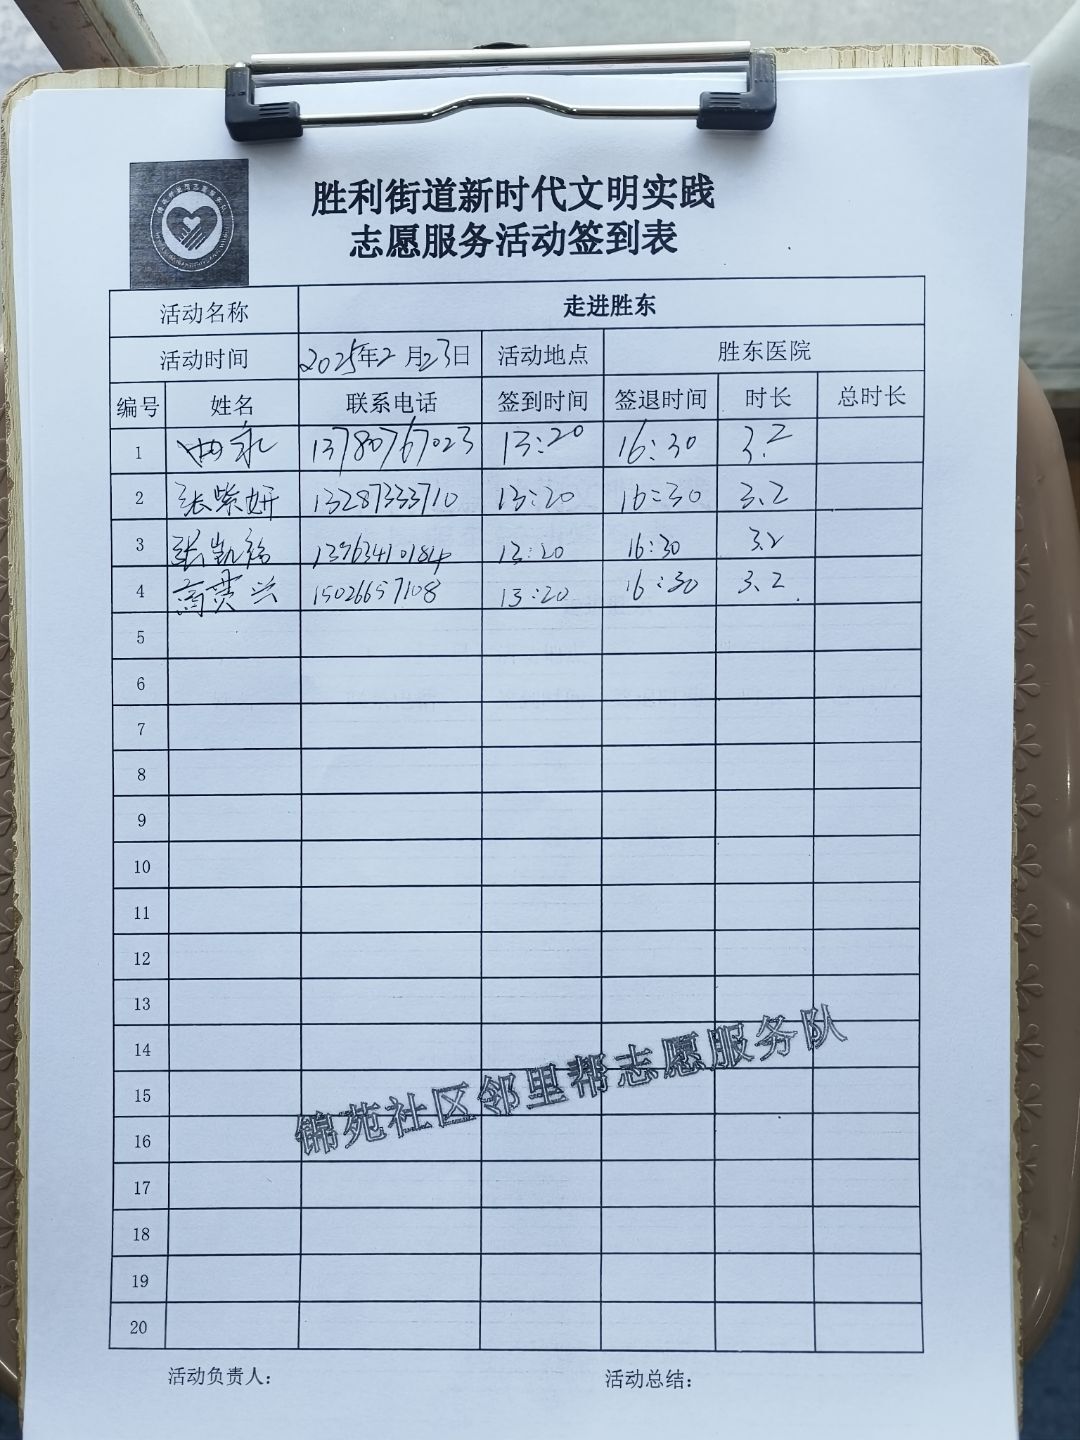 胜利街道新时代文明实践
志愿服务活动签到表
活动名称 走进胜东
活动时间 2025年2月23日 活动地点 胜东医院
编号 姓名 联系电话 签到时间 签退时间 时长 总时长
1 曲永 13780767023 13:20 16:30 3.2
2 张紫妍 13287333710 13:20 16:30 3.2
3 张凯铭 13963410184 13:20 16:30 3.2
4 高贵兴 15026657108 13:20 16:30 3.2
5
6
7
8
9
10
11
12
13
14
15
16
17
18
19
20
锦苑社区邻里帮志愿服务队
活动负责人: 活动总结: